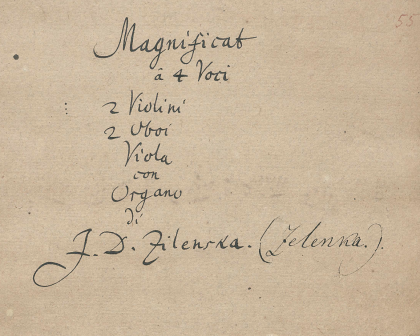 55
Magnificat
â 4 Voci
2 Violini
2 Oboi
Viola
con
Organo
di
J. D. Zilenska. (Zelenka.).